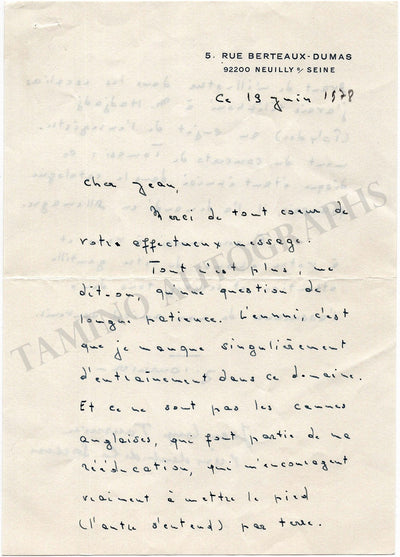 5. RUE BERTEAUX-DUMAS
92200 NEUILLY S/ SEINE
Ce 19 juin 1978
Cher Jean,
Merci de tout coeur de
votre affectueux message.
Tout n'est plus, me
dit-on, qu'une question de
longue patience. L'ennui, c'est
que je manque singulièrement
d'entraînement dans ce domaine.
Et ce ne sont pas les cannes
anglaises, qui font partie de ma
rééducation, qui m'encouragent
vraiment à mettre le pied
(l'autre s'entend) par terre.
TAMINO AUTOGRAPHS